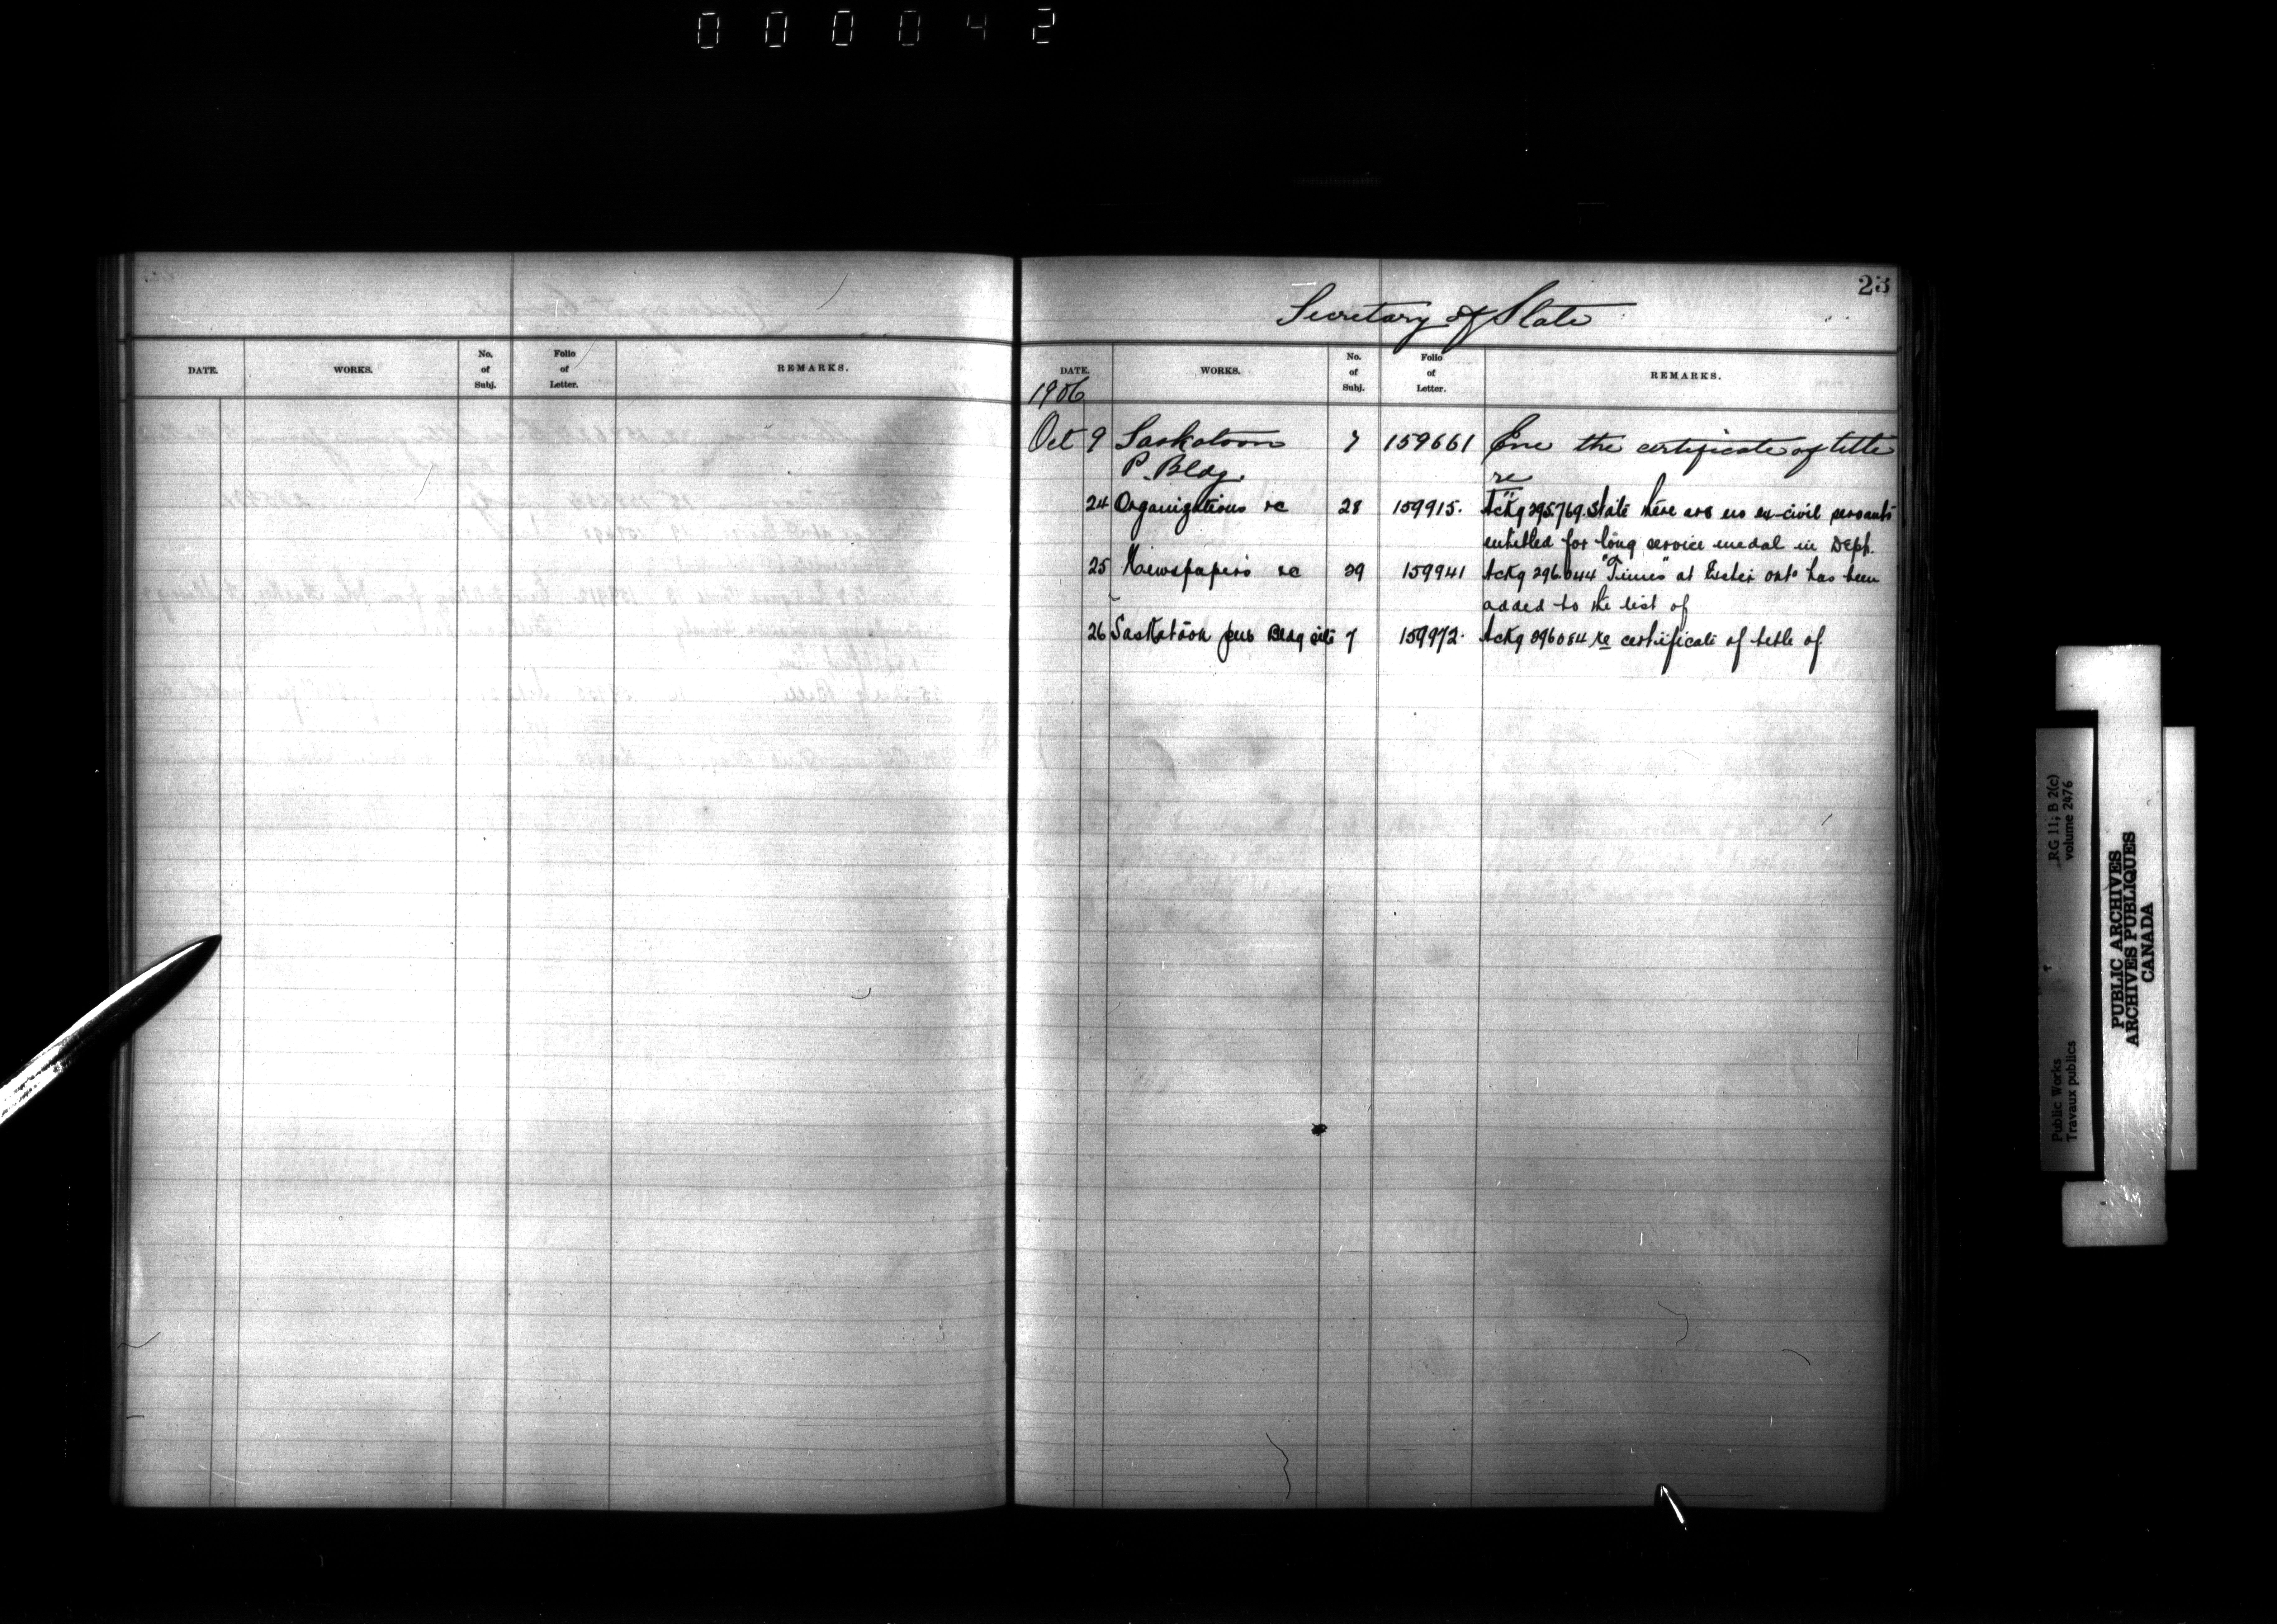 000042
23
Secretary of State
DATE. WORKS. No. of Subj. Folio of Letter. REMARKS.
DATE. WORKS. No. of Subj. Folio of Letter. REMARKS.
1906
Oct 9 Saskatoon 7 159661 Enc the certificate of title
P. Bldg. re
24 Organizations re 28 159915. Ackg 295769. State there are no ex-civil servants
entitled for long service medal in Dept.
25 Newspapers re 29 159941 Ackg 296044 "Times" at Exeter Ont° has been
added to the list of
26 Saskatoon pub Bldg site 7 159972. Ackg 296084 re certificate of title of
RG 11; B 2(c)
volume 2476
Public Works
Travaux publics
PUBLIC ARCHIVES
ARCHIVES PUBLIQUES
CANADA